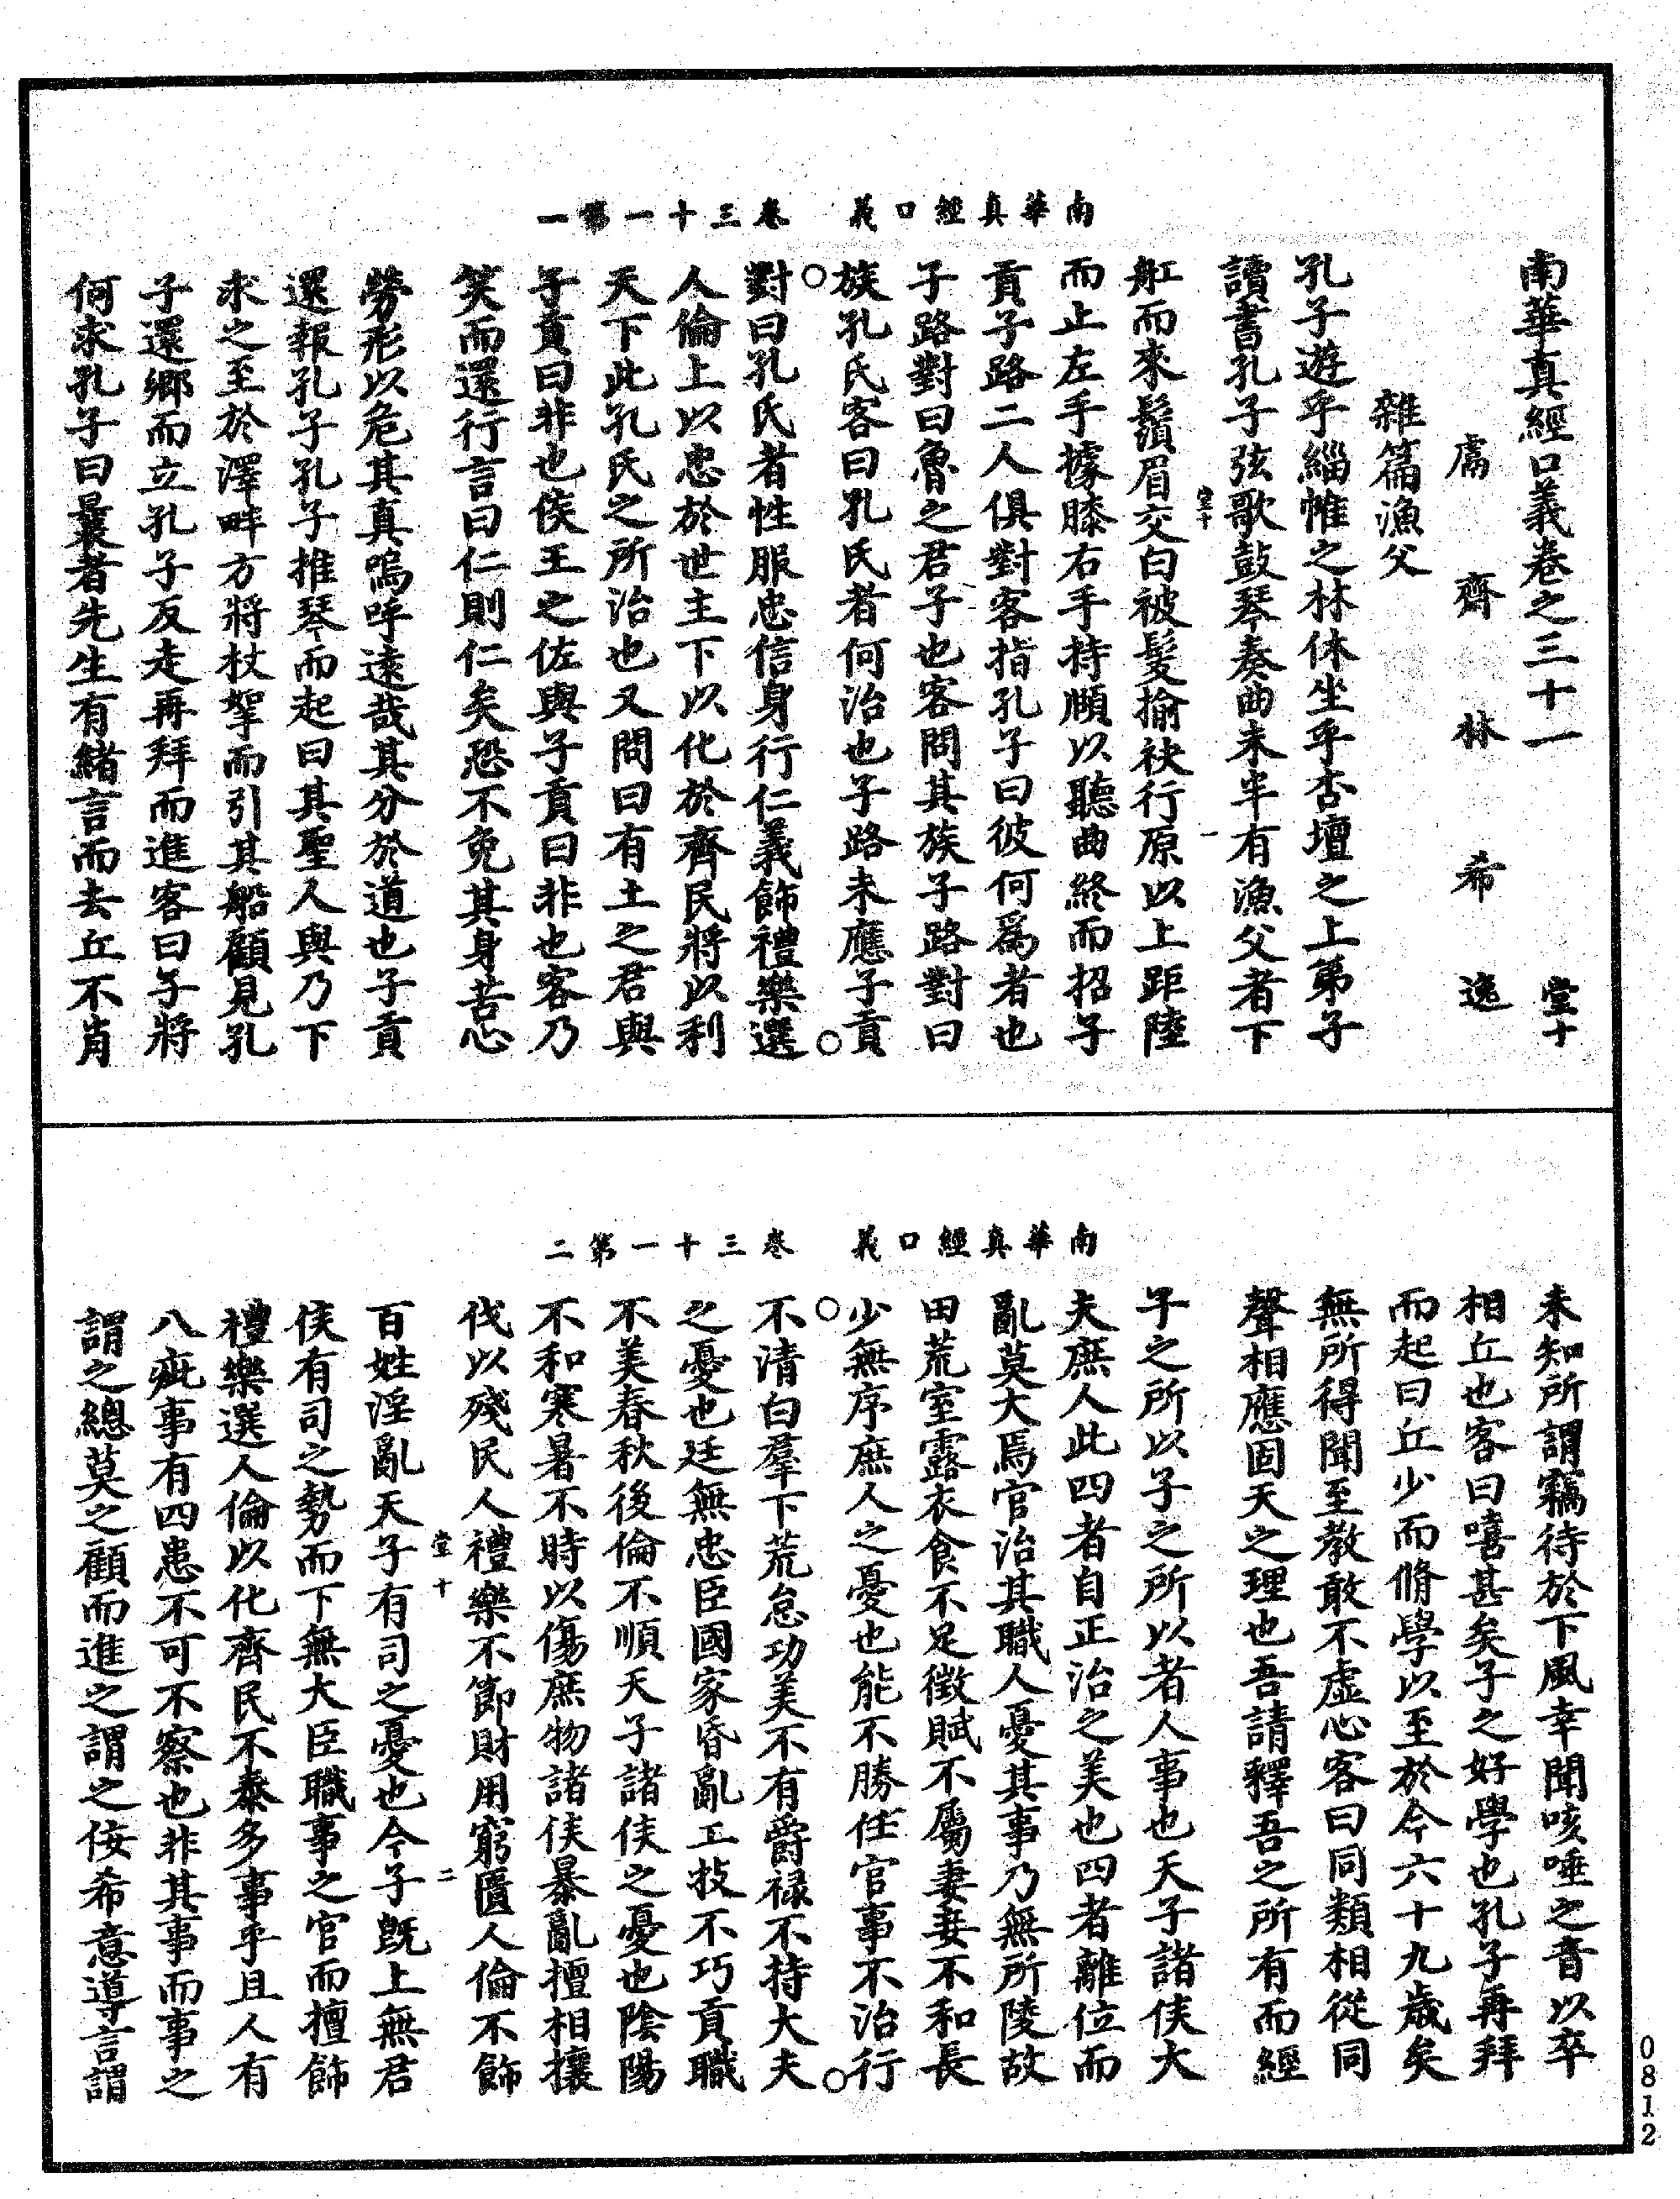 南華真經口義卷之三十一　堂十
鬳齋林希逸
雜篇漁父
孔子遊乎緇帷之林休坐乎杏壇之上弟子
讀書孔子弦歌鼓琴奏曲未半有漁父者下
堂十　一
舡而來鬚眉交白被髮揄袂行原以上距陸
而止左手據膝右手持頤以聽曲終而招子
貢子路二人俱對客指孔子曰彼何爲者也
子路對曰魯之君子也客問其族子路對曰
族孔氏客曰孔氏者何治也子路未應子貢
南華真經口義　卷三十一第一
對曰孔氏者性服忠信身行仁義飾禮樂選
人倫上以忠於世主下以化於齊民將以利
天下此孔氏之所治也又問曰有土之君與
子貢曰非也侯王之佐與子貢曰非也客乃
笑而還行言曰仁則仁矣恐不免其身苦心
勞形以危其真嗚呼遠哉其分於道也子貢
還報孔子孔子推琴而起曰其聖人與乃下
求之至於澤畔方將杖拏而引其船顧見孔
子還鄉而立孔子反走再拜而進客曰子將
何求孔子曰曩者先生有緒言而去丘不肖
未知所謂竊待於下風幸聞咳唾之音以卒
相丘也客曰嘻甚矣子之好學也孔子再拜
而起曰丘少而脩學以至於今六十九歲矣
無所得聞至教敢不虛心客曰同類相從同
聲相應固天之理也吾請釋吾之所有而經
子之所以子之所以者人事也天子諸侯大
夫庶人此四者自正治之美也四者離位而
亂莫大焉官治其職人憂其事乃無所陵故
田荒室露衣食不足徵賦不屬妻妾不和長
少無序庶人之憂也能不勝任官事不治行
南華真經口義　卷三十一第二
不清白羣下荒怠功美不有爵祿不持大夫
之憂也廷無忠臣國家昏亂工技不巧貢職
不美春秋後倫不順天子諸侯之憂也陰陽
不和寒暑不時以傷庶物諸侯暴亂擅相攘
伐以殘民人禮樂不節財用窮匱人倫不飾
堂十　二
百姓淫亂天子有司之憂也今子既上無君
侯有司之勢而下無大臣職事之官而擅飾
禮樂選人倫以化齊民不泰多事乎且人有
八疵事有四患不可不察也非其事而事之
謂之總莫之顧而進之謂之佞希意導言謂
0812